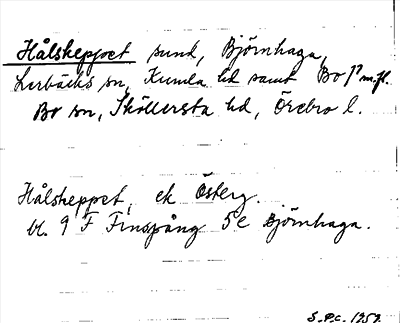 Hålskeppet sund, Björnhaga,
Lerbäcks sn, Kumla hd samt Bo p m.fl.
Bo sn, Sköllersta hd, Örebro l.
Hålskeppet, ek Österg.
bl. 9 F Finspång 5 e Björnhaga.
S.P.C. 1959.